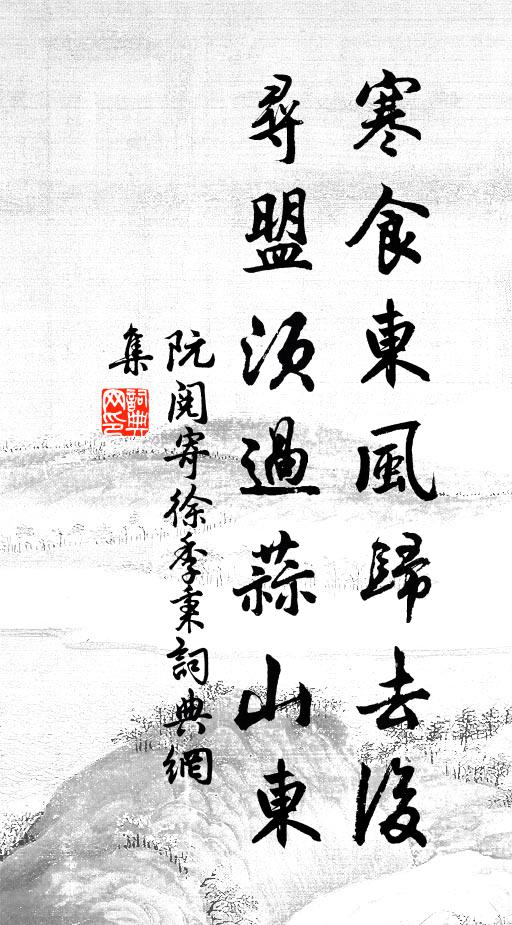 寒食東風歸去後
尋盟須過蒜山東
阮閱寄徐季秉詞典網
集
詞典
网印